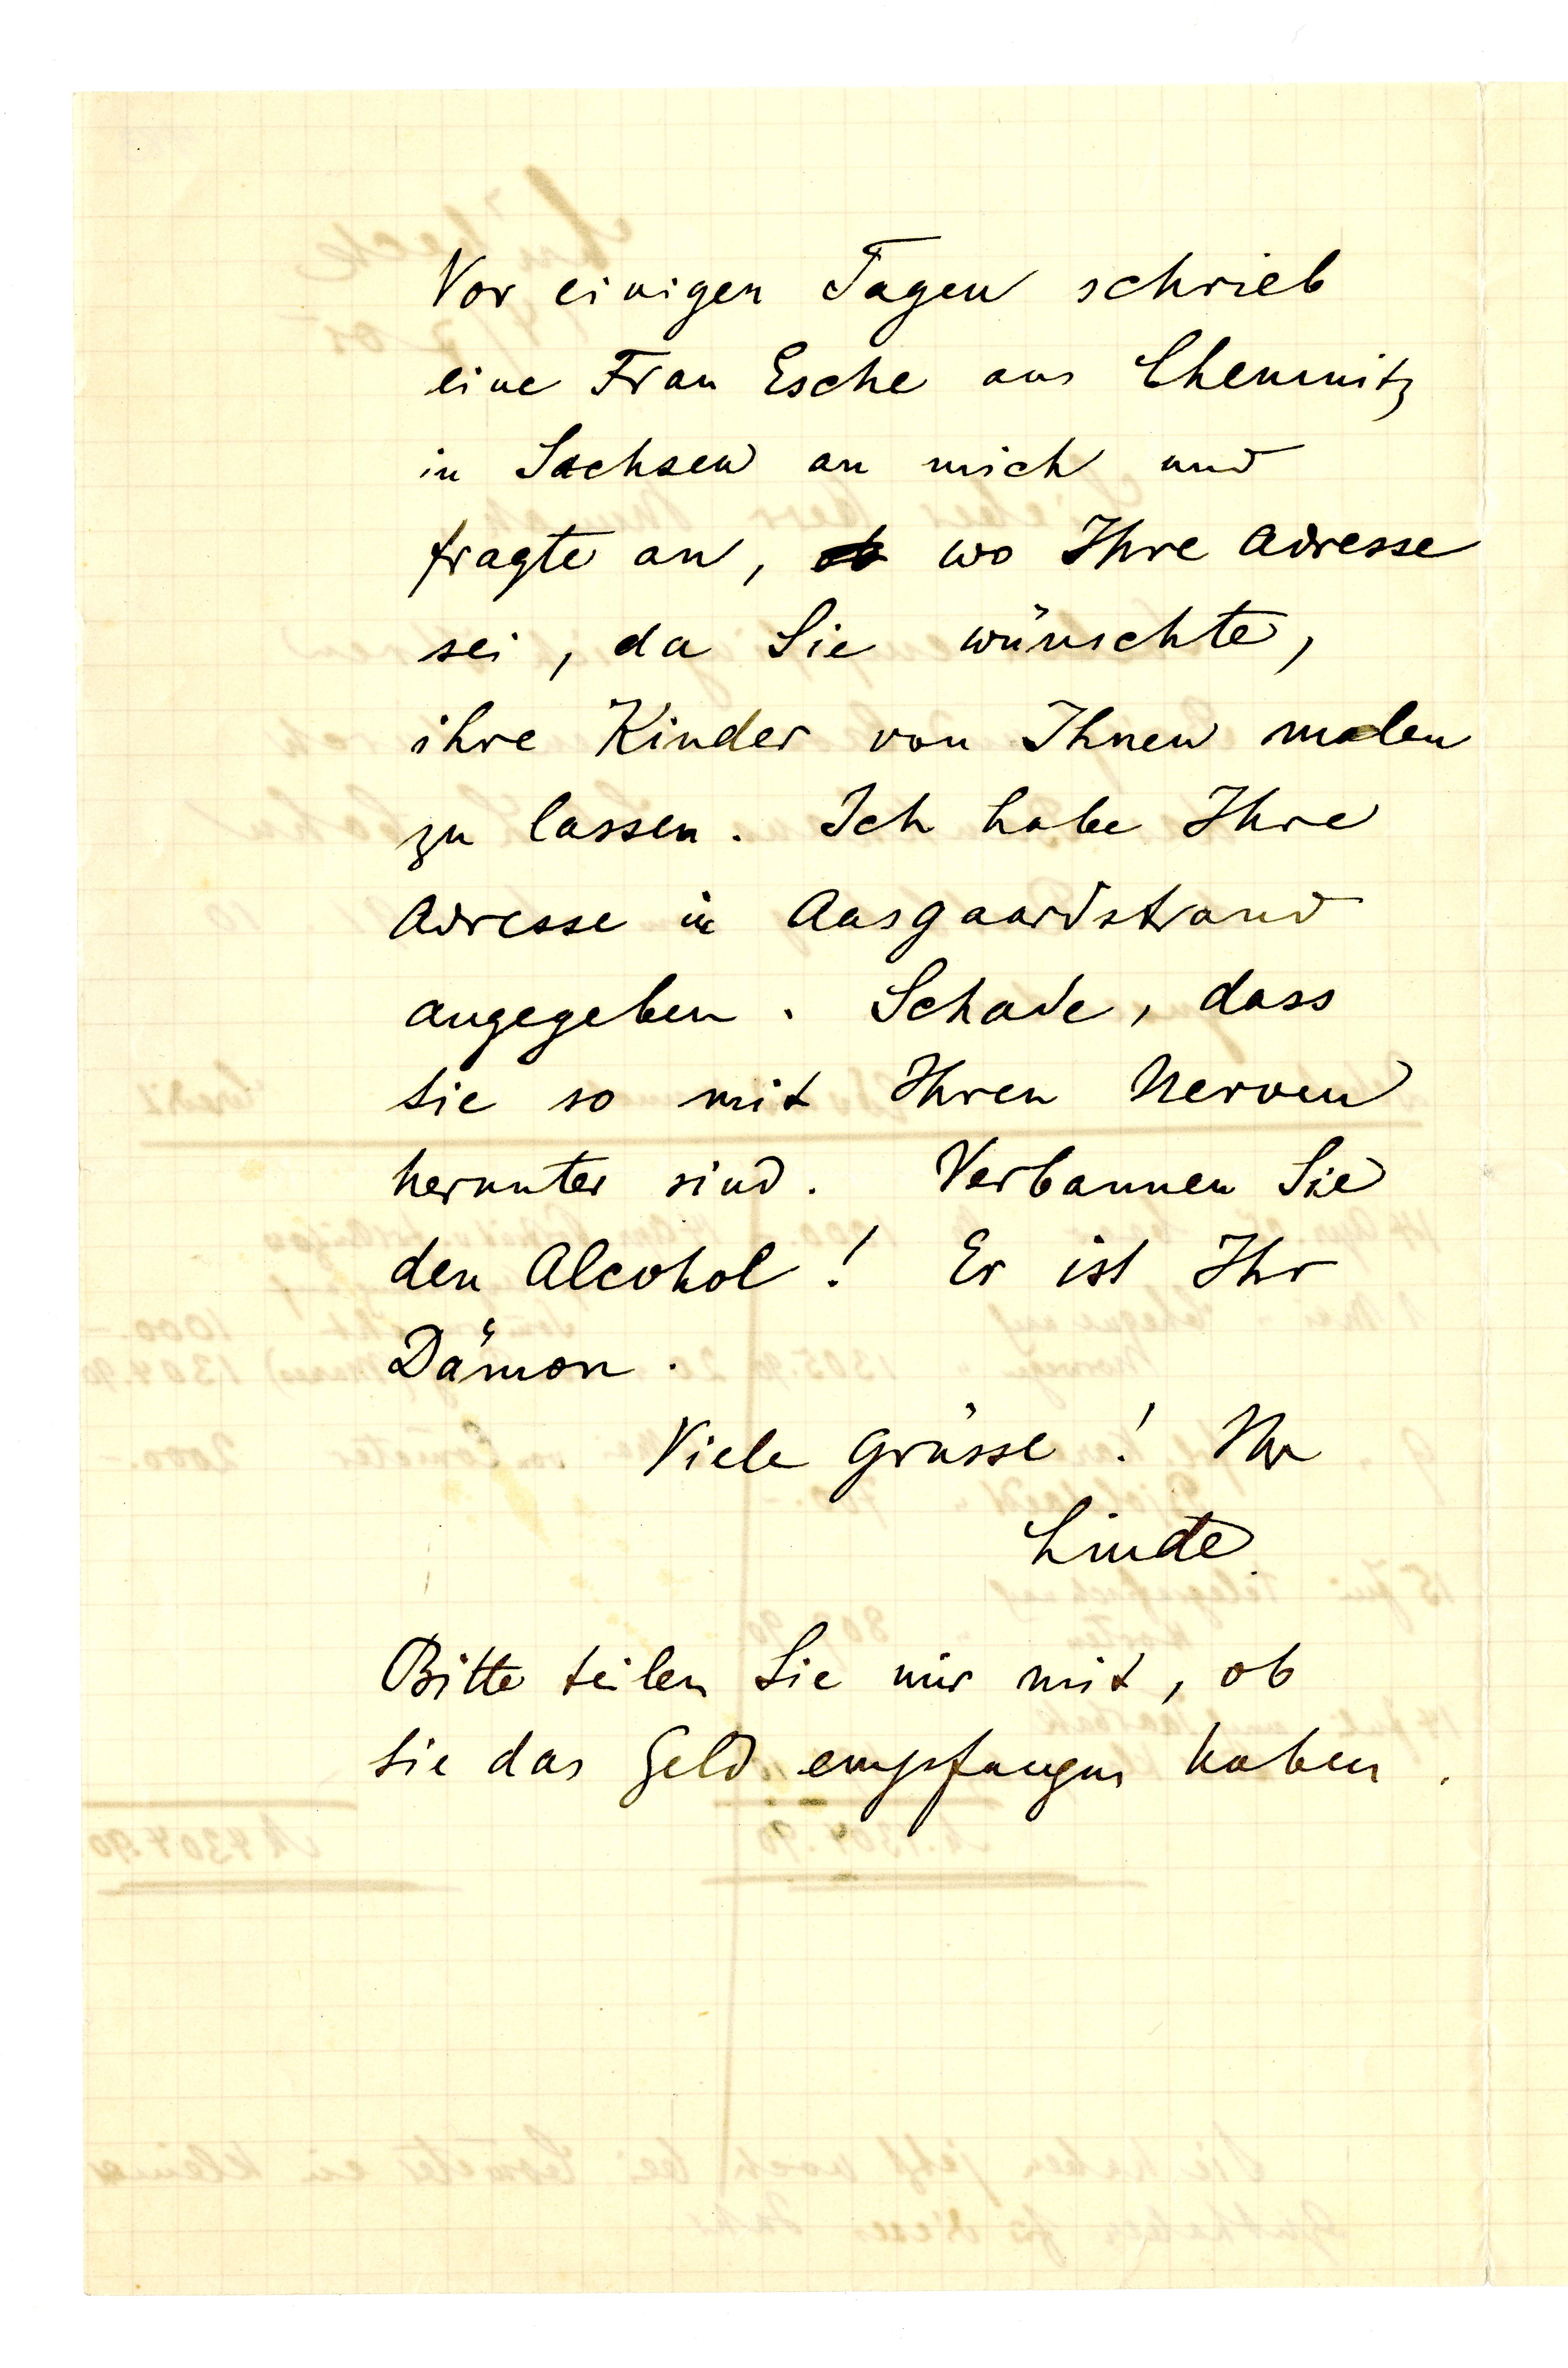 Vor einigen Tagen schrieb
eine Frau Esche aus Chemnitz
in Sachsen an mich und
fragte an, ob wo Ihre Adresse
sei, da Sie wünschte,
ihre Kinder von Ihnen malen
zu lassen. Ich habe Ihre
Adresse in Aasgaardstrand
angegeben. Schade, dass
Sie so mit Ihren Nerven
herunter sind. Verbannen Sie
den Alcohol! Er ist Ihr
Dämon.
Viele Grüsse! Ihr
Linde.
Bitte teilen Sie mir mit, ob
Sie das Geld empfangen haben.